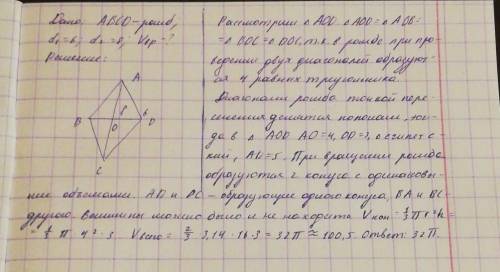 Дано: ABCD-ромб,
d₁=6; d₂=8; Vвр-?
Решение:
A
8
6
B
O
D
C
Рассмотрим △AOD. △AOD=△AOB=
=△BOC=△DOC, т.к. в ромбе при про-
ведении двух диагоналей образуют-
ся 4 равных треугольника.
Диагонали ромба точкой пере-
сечения делятся пополам, тог-
да в △AOD AO=4, OD=3, △египетс-
кий, AD=5. При вращении ромба
образуются 2 конуса с одинаковы-
ми объемами. AD и DC - образующие одного конуса, BA и BC-
другого. Вычислить можно было и не находить Vкон=⅓πr²h=
=⅓π·4²·3. Vвсего=⅔·3,14·16·3=32π≈100,5. Ответ: 32π.